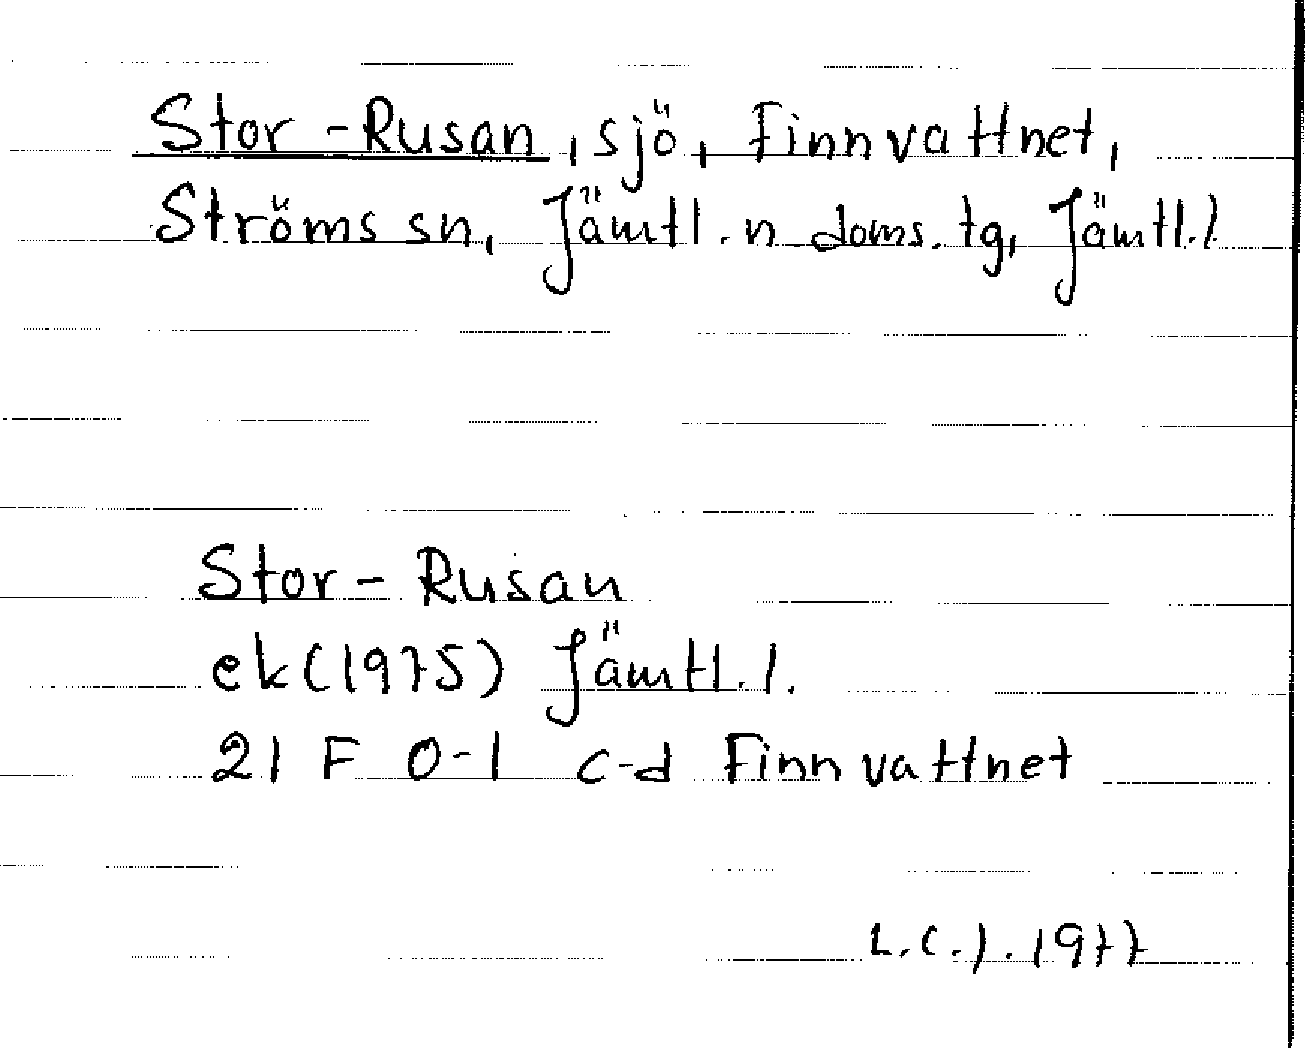 Stor-Rusan, sjö, Finnvattnet,
Ströms sn, Jämtl. n doms. tg, Jämtl. l
Stor-Rusan
ek (1975) Jämtl. l.
21 F 0-1 c-d Finnvattnet
L.C.J. 1977